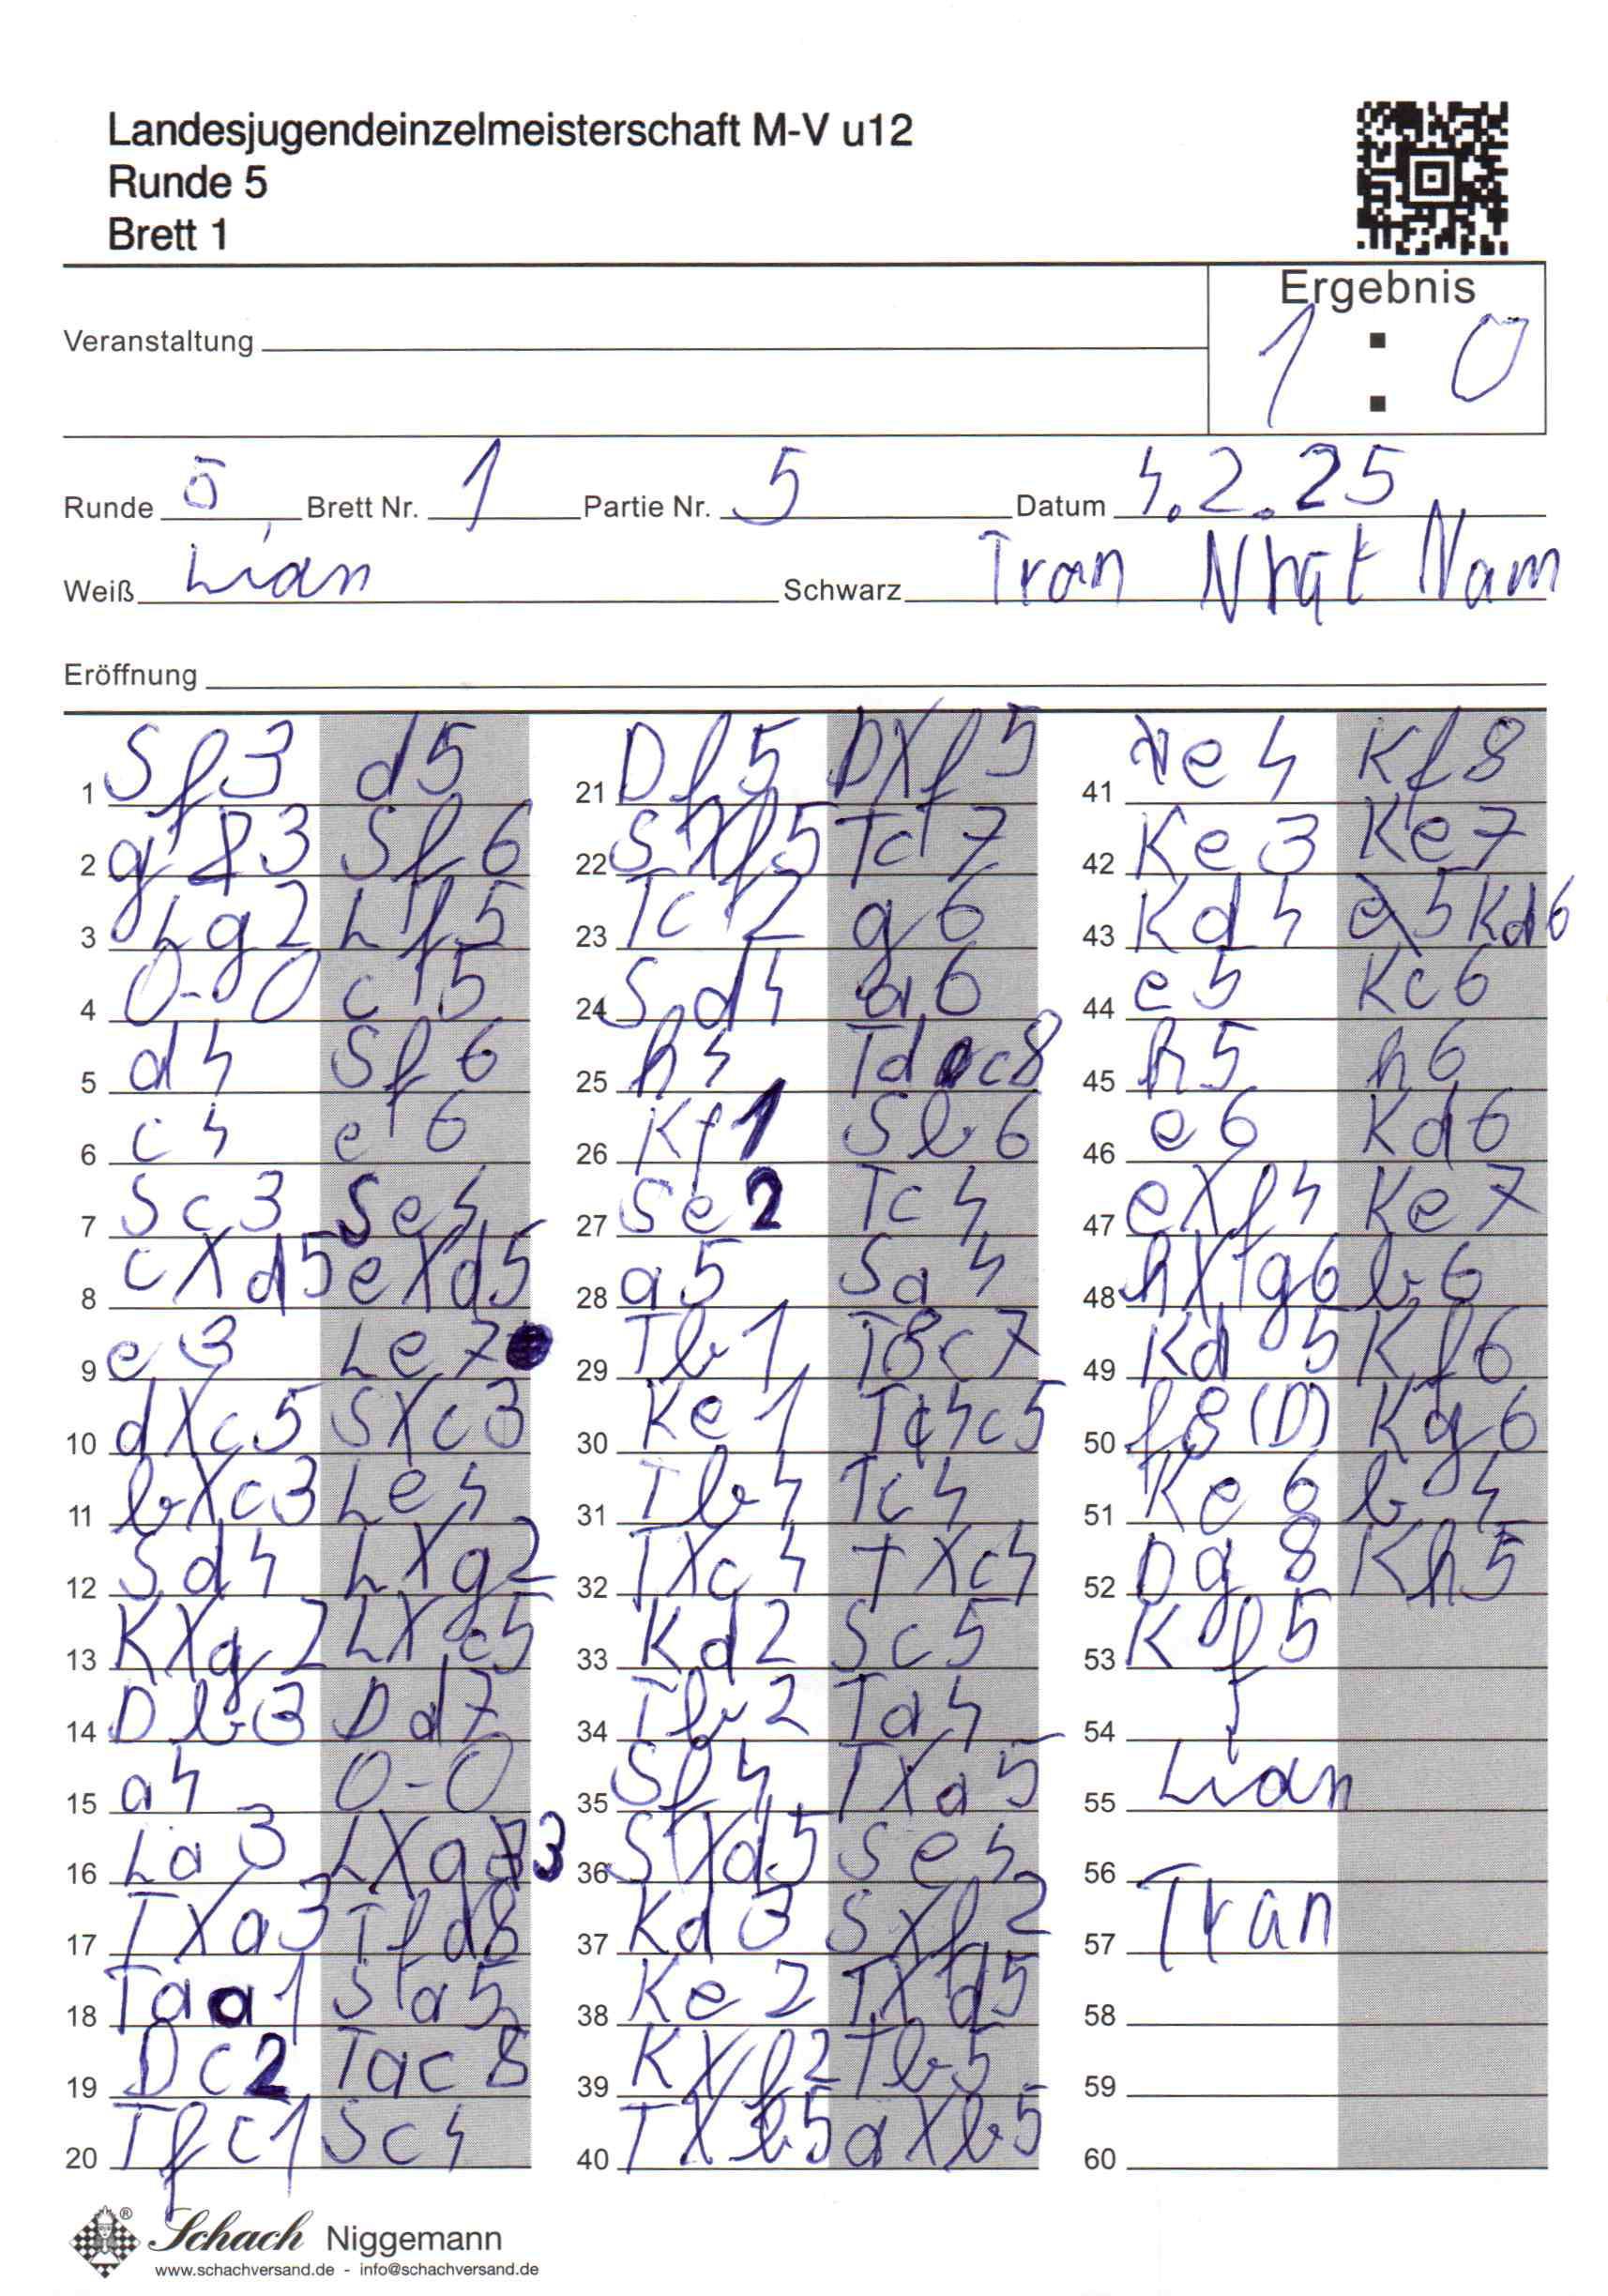 Landesjugendeinzelmeisterschaft M-V u12
Runde 5
Brett 1
Ergebnis
1 : 0
Veranstaltung
Runde 5 Brett Nr. 1 Partie Nr. 5 Datum 4.2.25
Weiß Lian Schwarz Tran Nhật Nam
Eröffnung
1 Sf3 d5
2 g3 Sf6
3 Lg2 Lf5
4 0-0 c5
5 d4 Sf6
6 c4 e6
7 Sc3 Se4
8 cXd5 eXd5
9 e3 Le7
10 dXc5 SXc3
11 bXc3 Le4
12 Sd4 LXg2
13 KXg2 LXc5
14 Db3 Dd7
15 a4 0-0
16 La3 LXa3
17 TXa3 Tfd8
18 Taa1 Sa5
19 Dc2 Tac8
20 Tfc1 Sc4
21 Df5 DXf5
22 SXf5 Tc7
23 Tc2 g6
24 Sd4 a6
25 h4 Tdc8
26 Kf1 Sb6
27 Se2 Tc4
28 a5 Sa4
29 Tb1 T8c7
30 Ke1 T4c5
31 Tb4 Tc4
32 TXc4 TXc4
33 Kd2 Sc5
34 Tb2 Ta4
35 Sf4 TXa5
36 SXd5 Se4
37 Kd3 SXf2
38 Ke2 TXd5
39 KXf2 Tb5
40 TXb5 aXb5
41 e4 Kf8
42 Ke3 Ke7
43 Kd4 Kd6
44 e5 Kc6
45 h5 h6
46 e6 Kd6
47 eXf4 Ke7
48 hXg6 b6
49 Kd5 Kf6
50 f8(D) Kg6
51 Ke6 b4
52 Dg8 Kh5
53 Kf5
54
55 Lian
56
57 Tran
58
59
60
Schach Niggemann
www.schachversand.de - info@schachversand.de